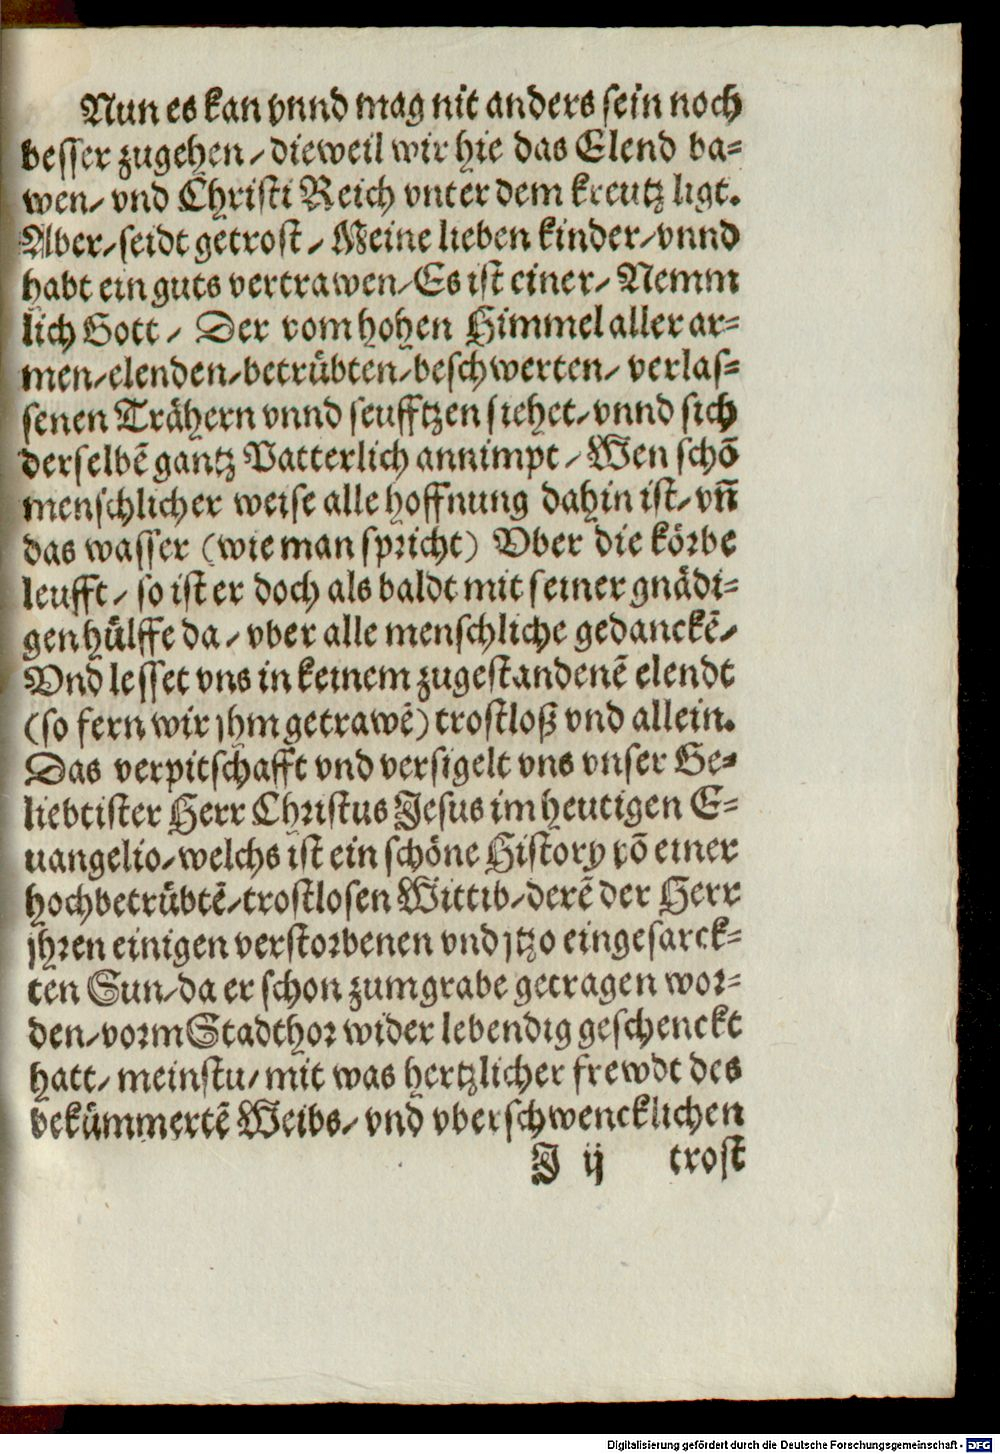 Nun es kan vnnd mag nit anders sein noch
besser zugehen/ dieweil wir hie das Elend ba-
wen/ vnd Christi Reich vnter dem kreutz ligt.
Aber/ seidt getrost/ Meine lieben kinder/ vnnd
habt ein guts vertrawen/ Es ist einer/ Nemm
lich Gott/ Der vom hohen Himmel aller ar-
men/ elenden/ betrübten/ beschwerten/ verlas-
senen Trähern vnnd seufftzen siehet/ vnnd sich
derselbē gantz Vatterlich annimpt/ Wen schō
menschlicher weise alle hoffnung dahin ist/ vn̄
das wasser (wie man spricht) Vber die körbe
leufft/ so ist er doch als baldt mit seiner gnädi-
gen hülffe da/ vber alle menschliche gedanckē/
Vnd lesset vns in keinem zugestandenē elendt
(so fern wir jhm getrawē) trostloß vnd allein.
Das verpitschafft vnd versigelt vns vnser Ge-
liebtister Herr Christus Jesus im heutigen E-
uangelio/ welchs ist ein schöne History vō einer
hochbetrübtē/ trostlosen Wittib/ derē der Herr
jhren einigen verstorbenen vnd jtzo eingesarck-
ten Sun/ da er schon zum grabe getragen wor-
den/ vorm Stadthor wider lebendig geschenckt
hatt/ meinstu/ mit was hertzlicher frewdt des
bekümmertē Weibs/ vnd vberschwencklichen
J ij trost
Digitalisierung gefördert durch die Deutsche Forschungsgemeinschaft - DFG